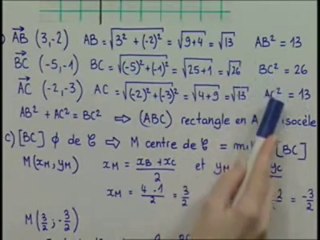 AB (3,-2) AB = √3² + (-2)² = √9+4 = √13 AB² = 13
BC (-5,-1) BC = √(-5)²+(-1)² = √25+1 = √26 BC² = 26
AC (-2,-3) AC = √(-2)²+(-3)² = √4+9 = √13 AC² = 13
AB² + AC² = BC² ⇒ (ABC) rectangle en A isocèle
c) [BC] φ de C ⇒ M centre de C = [BC]
M(xM, yM) xM = xB + xC / 2 et yM yC
⇒ xM = 4-1 / 2 = 3/2 = -3/2
M(3/2, -3/2)